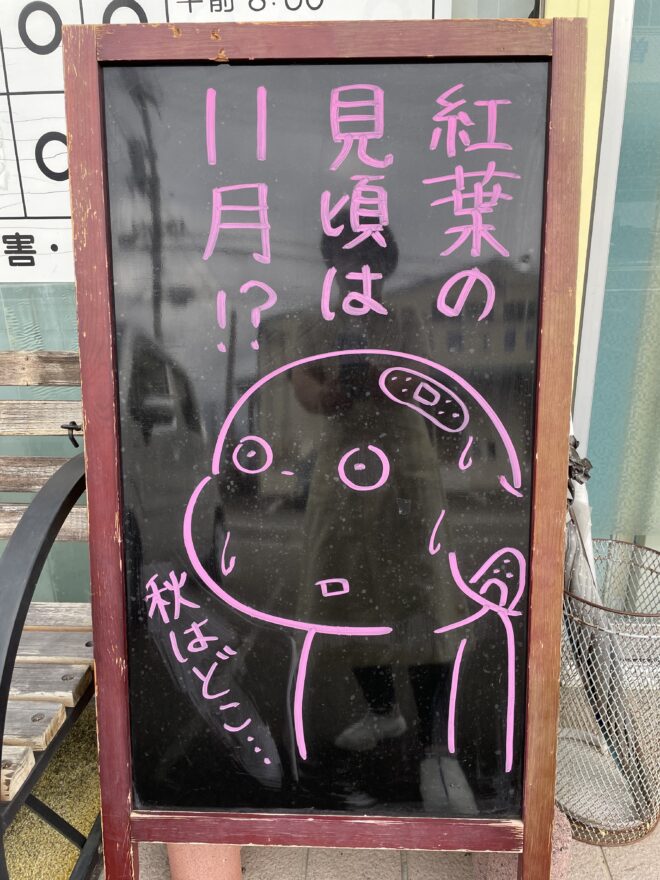 紅葉の
見頃は
11月!?
秋はどこ…
午前 8:00
害・